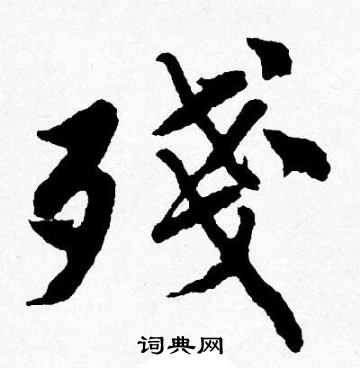 殘
词典网